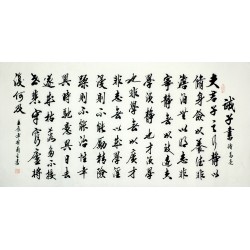 誡子書 諸葛亮
夫君子之行静以
脩身儉以養德非
澹泊無以明志非
寧静無以致遠夫
學須静也才須學
也非學無以廣才
非志無以成學
慢則不能勵精險
躁則不能冶性年
與時馳意與日去
遂成枯落多不接
世悲守窮廬將
復何及